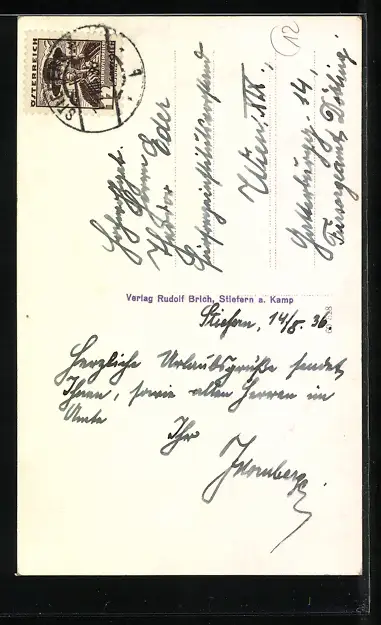 12
ÖSTERREICH
12
Herrn
Theodor Eder
Wien, XIX.,
14,
Fürsorgeamt Döbling.
Verlag Rudolf Brich, Stiefern a. Kamp
Stiefern, 14/8. 36.
Herzliche Urlaubsgrüße sendet
Ihnen, sowie allen Herren im
Amte
Ihr